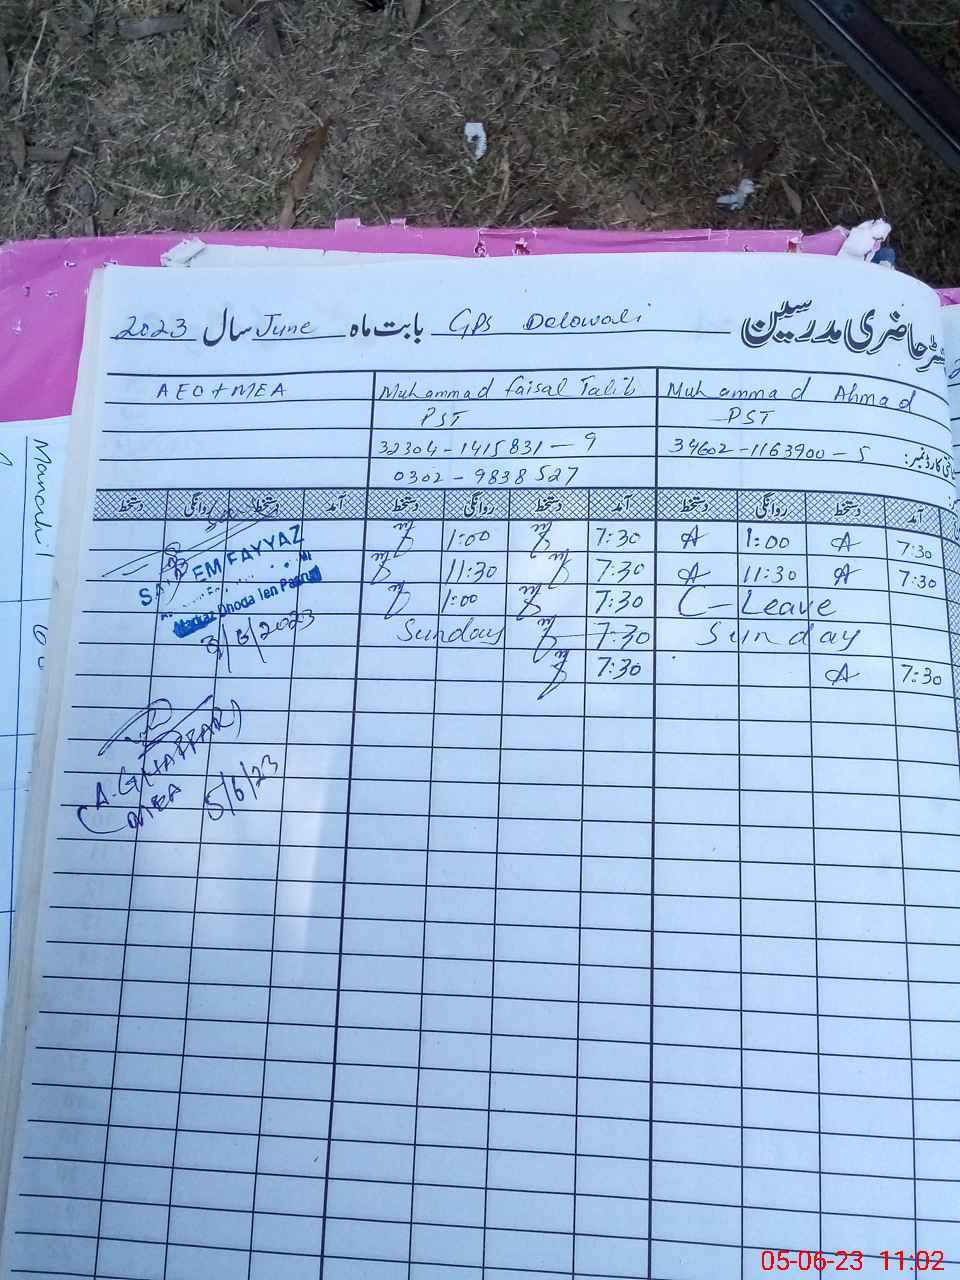 رجسٹر حاضری مدرسین GPS Delowali بابت ماہ June سال 2023
AEO + MEA Muhammad Faisal Talib Muhammad Ahmad
PST PST
32304-1415831-9 34602-1163900-5
0302-9838527
دستخط روانگی دستخط آمد دستخط روانگی دستخط آمد دستخط روانگی دستخط آمد
1:00 7:30 A 1:00 A 7:30
11:30 7:30 A 11:30 A 7:30
1:00 7:30 C-Leave
Sunday 7:30 Sunday
7:30 A 7:30
EM FAYYAZ
Markaz Dhoda
3/6/2023
(A. GHAFFAR)
MEA 5/6/23
Manahil
05-06-23 11:02